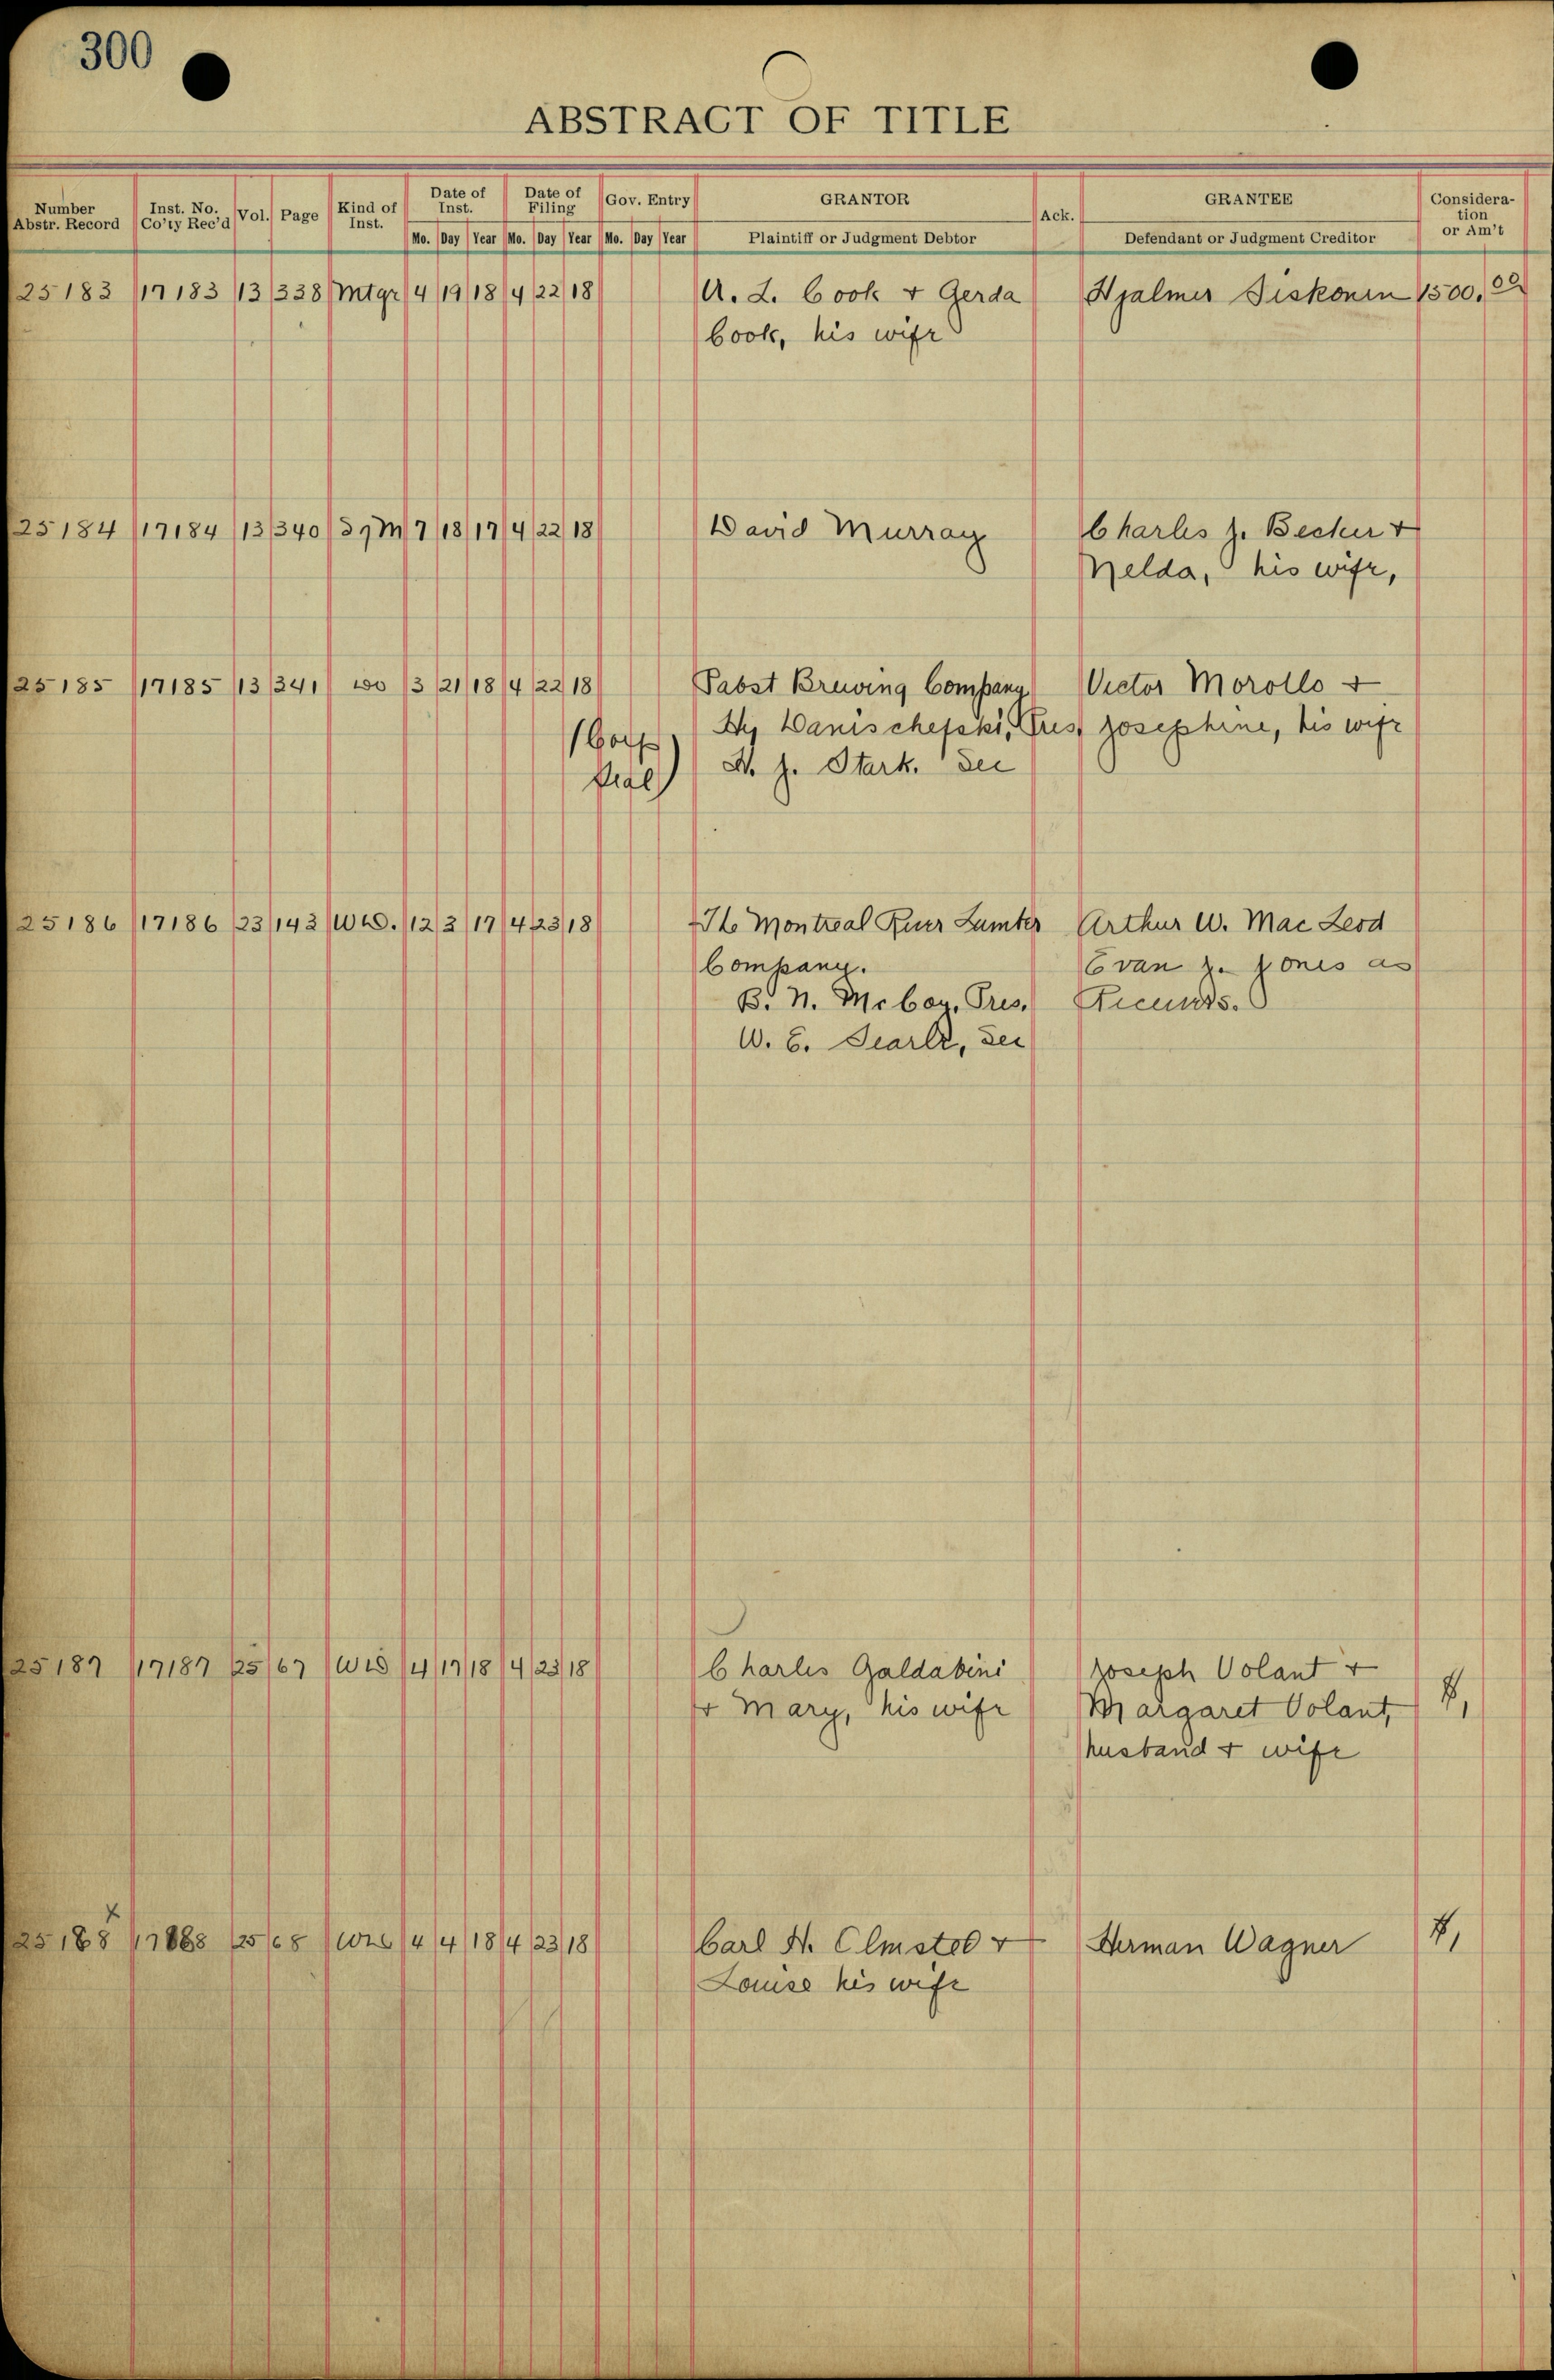 300
ABSTRACT OF TITLE
Number Abstr. Record Inst. No. Co'ty Rec'd Vol. Page Kind of Inst. Date of Inst. Date of Filing Gov. Entry GRANTOR Ack. GRANTEE Consideration or Am't
Mo. Day Year Mo. Day Year Mo. Day Year Plaintiff or Judgment Debtor Defendant or Judgment Creditor
25183 17183 13 338 Mtge 4 19 18 4 22 18 A. L. Cook + Gerda Hjalmer Siskonen 1500.00
Cook, his wife
25184 17184 13 340 M 7 18 17 4 22 18 David Murray Charles J. Becker +
Melda, his wife,
25185 17185 13 341 do 3 21 18 4 22 18 Pabst Brewing Company Victor Morollo +
(Corp By Danischefski, Pres Josephine, his wife
Seal) H. J. Stark. Sec
25186 17186 23 143 WD. 12 3 17 4 23 18 The Montreal River Lumber Arthur W. Mac Leod
Company. Evan J. Jones as
B. N. McCoy, Pres.
W. E. Searle, Sec
25187 17187 25 67 WD 4 17 18 4 23 18 Charles Galdabini Joseph Volant +
+ Mary, his wife Margaret Volant, $1
husband + wife
x
25188 17188 25 68 WD 4 4 18 4 23 18 Carl H. Elmsted + Herman Wagner $1
Louise his wife